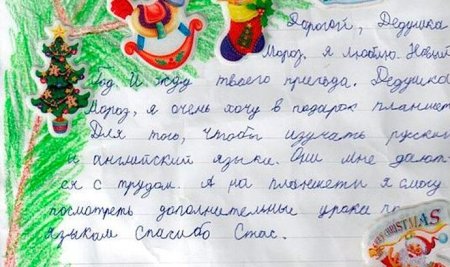 Дорогой, Дедушка
Мороз. Я люблю Новый
Год И жду твоего приезда. Дедушка
Мороз, я очень хочу в подарок планшет
Для того, чтобы изучать русски
и английский языка. Они мне дают-
ся с трудом. А на планшети я смогу
посмотреть дополнительные урока по
языкам Спасибо Стас.
CHRISTMAS